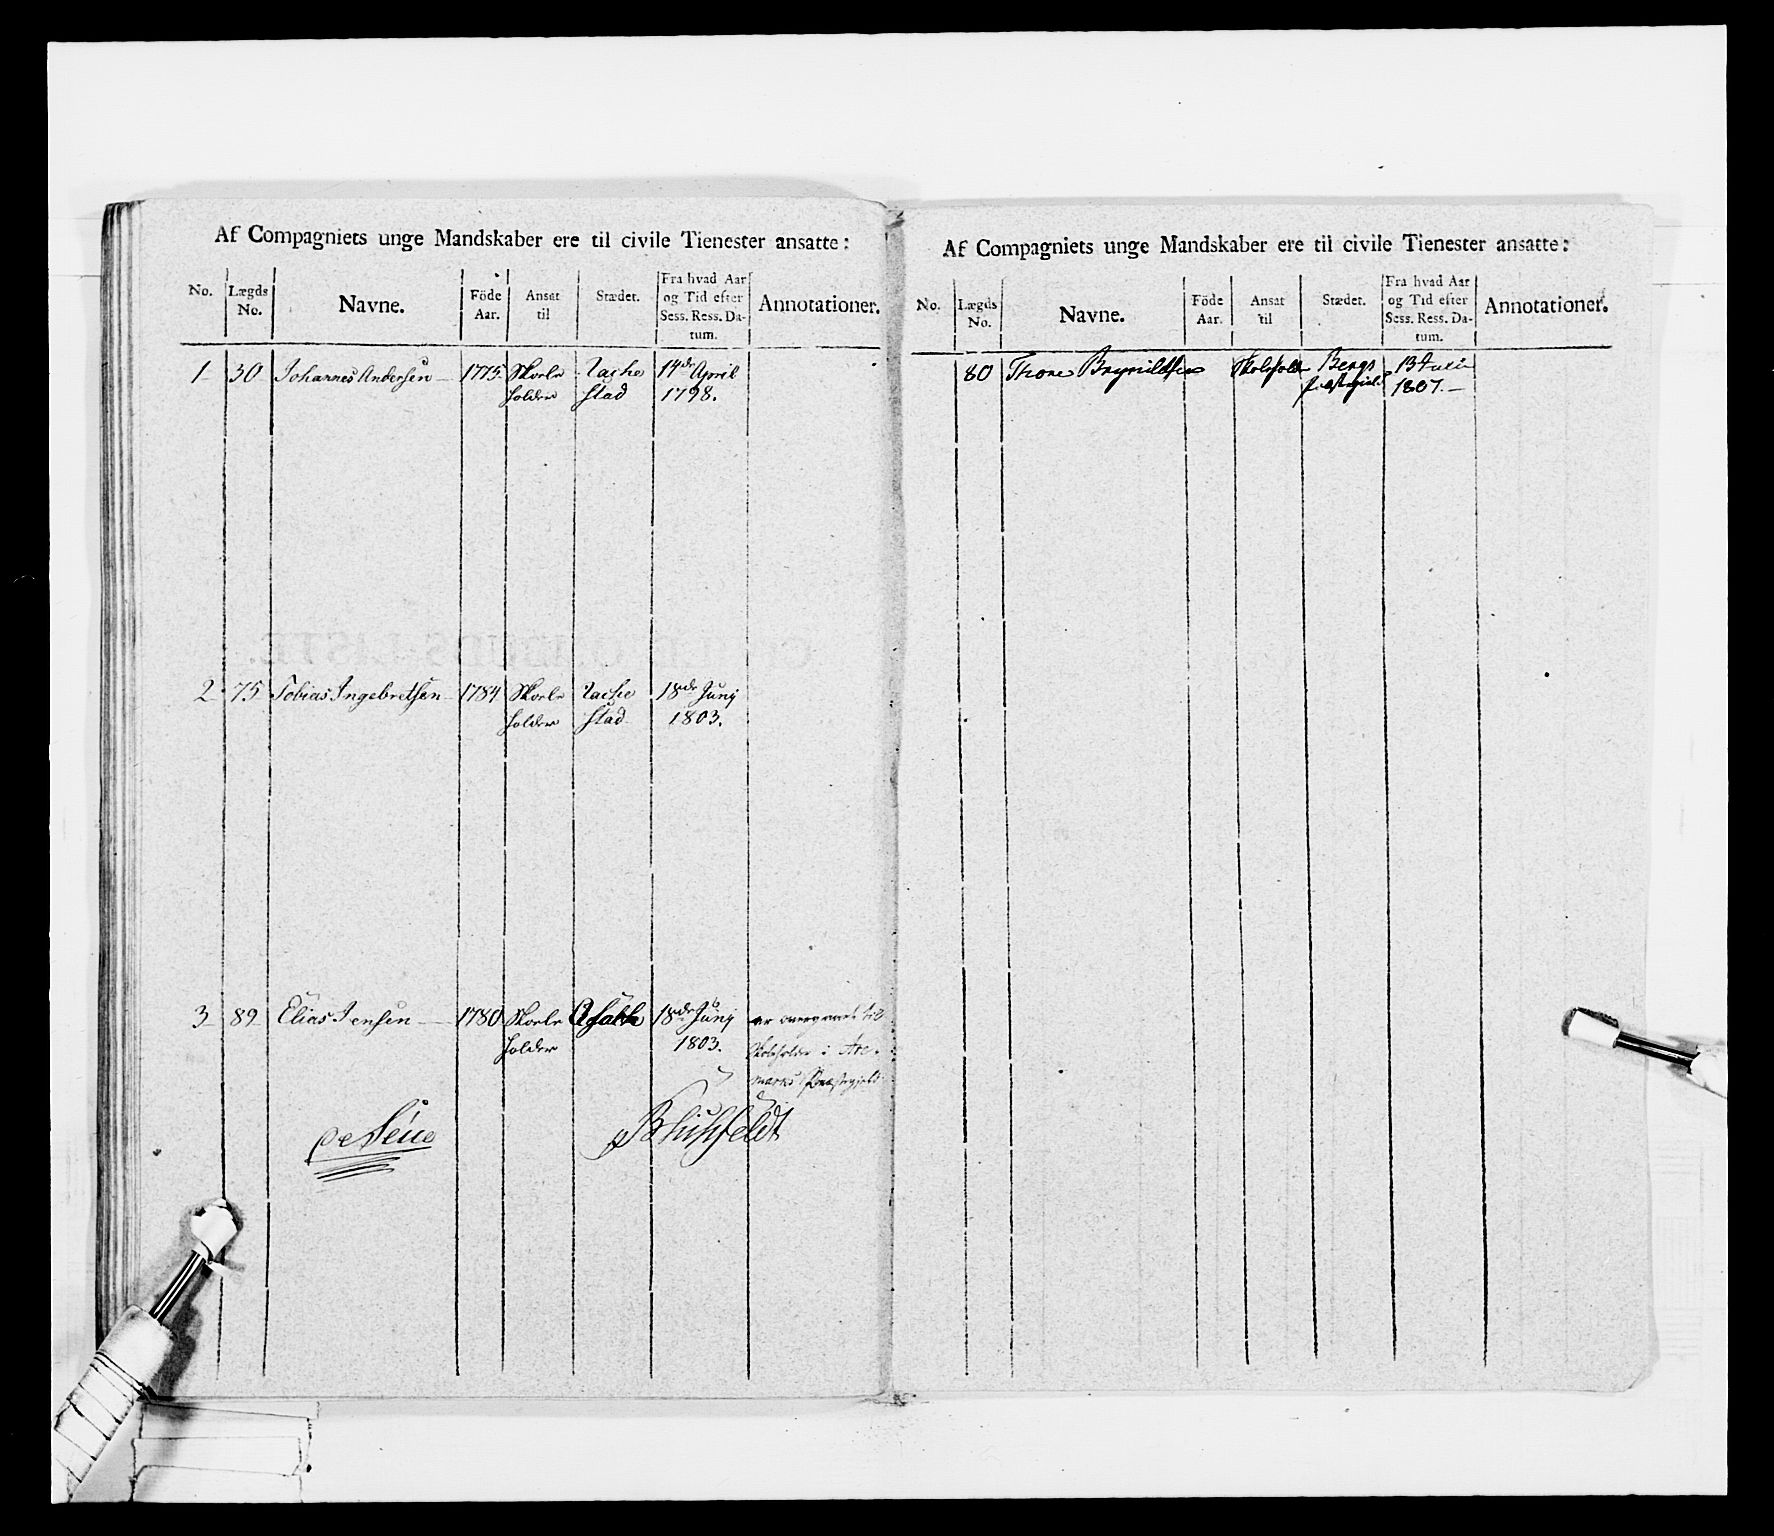 Af Compagniets unge Mandskaber ere til civile Tienester ansatte:
No. Lægds No. Navne. Föde Aar. Ansat til Stædet. Fra hvad Aar og Tid efter Sess. Ress. Datum. Annotationer.
1 30 Johannes Andersen 1775 Skole 14de April
holder stad 1798.
2 75 Tobias Ingebretsen 1784 Skole 18de Junj
holder stad 1803.
3 89 Elias Jensen 1780 Skole 18de Junj er til
holder 1803. Skoleholder i Are-
marks Præstegield
Af Compagniets unge Mandskaber ere til civile Tienester ansatte:
No. Lægds No. Navne. Föde Aar. Ansat til Stædet. Fra hvad Aar og Tid efter Sess. Ress. Datum. Annotationer.
80 Thore Brynildsen Skoleholder Bergs 13 Julii
Præstegield 1807.